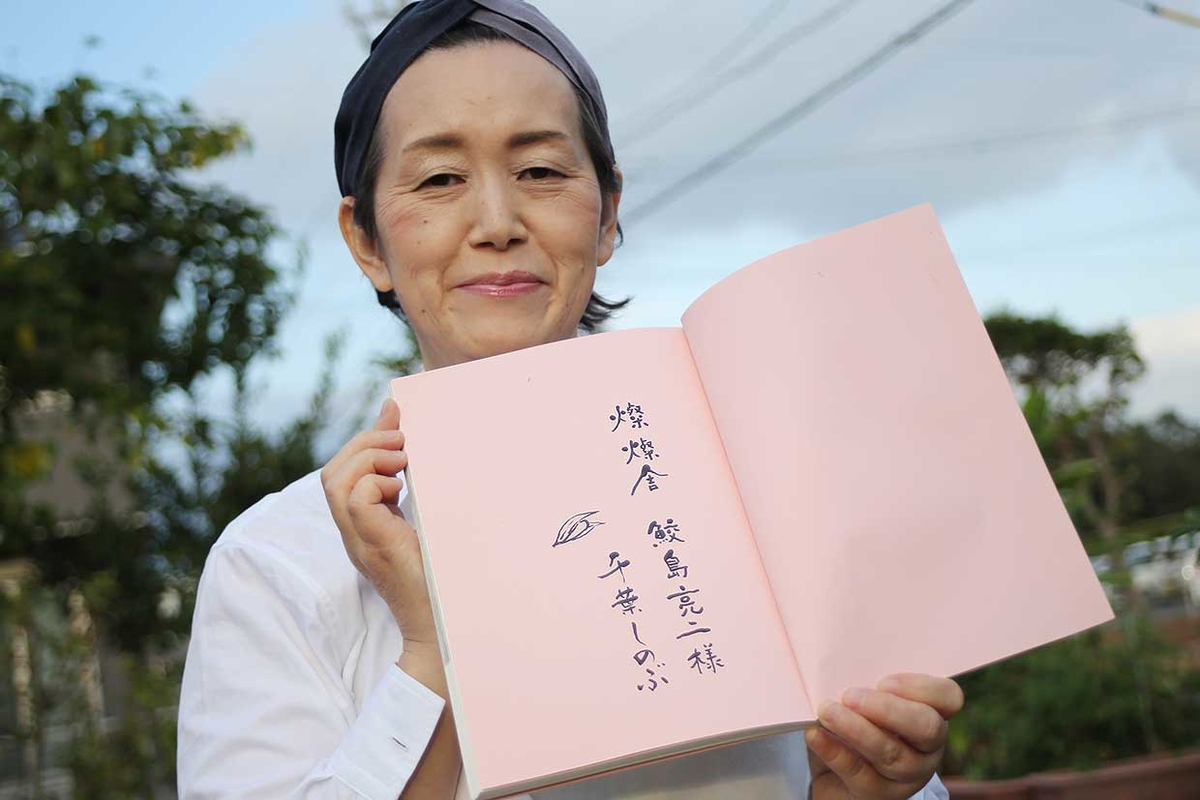 燦燦舎
鮫島亮二様
千葉しのぶ